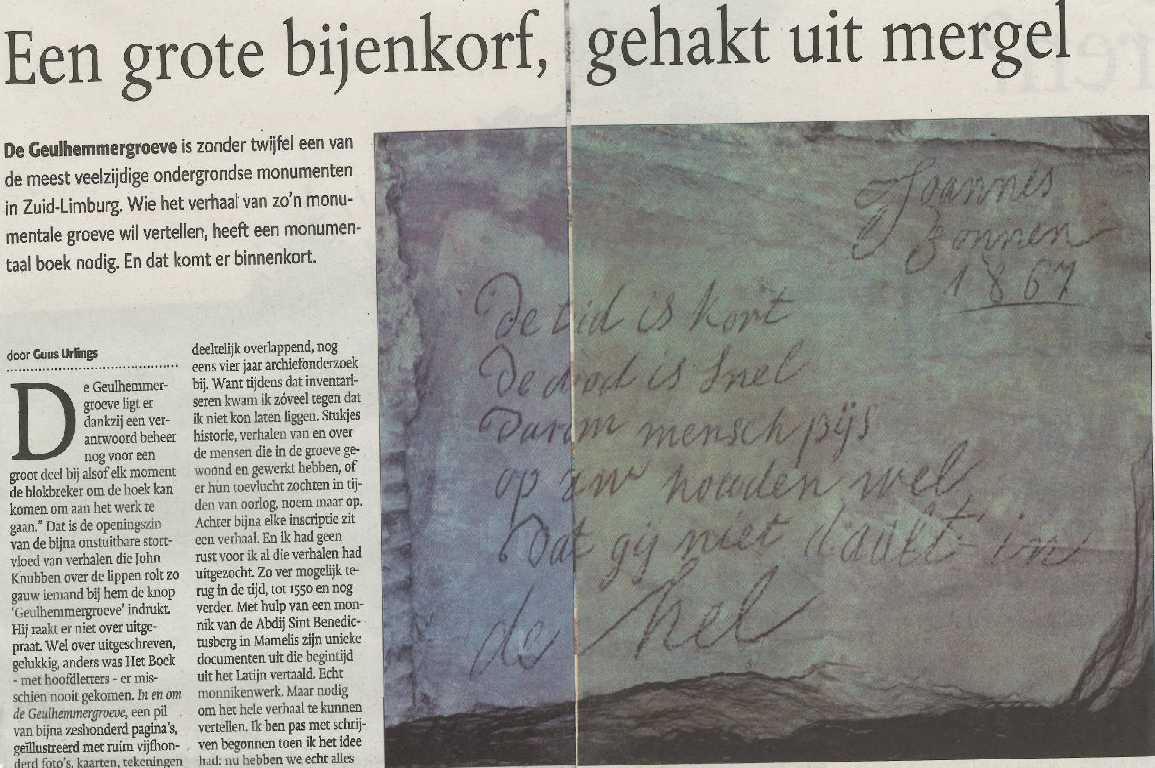 Een grote bijenkorf, gehakt uit mergel
De Geulhemmergroeve is zonder twijfel een van
de meest veelzijdige ondergrondse monumenten
in Zuid-Limburg. Wie het verhaal van zo'n monu-
mentale groeve wil vertellen, heeft een monumen-
taal boek nodig. En dat komt er binnenkort.
door Guus Urlings
De Geulhemmer-
groeve ligt er
dankzij een ver-
antwoord beheer
nog voor een
groot deel bij alsof elk moment
de blokbreker om de hoek kan
komen om aan het werk te
gaan." Dat is de openingszin
van de bijna onstuitbare stort-
vloed van verhalen die John
Knubben over de lippen rolt zo
gauw iemand bij hem de knop
'Geulhemmergroeve' indrukt.
Hij raakt er niet over uitge-
praat. Wel over uitgeschreven,
gelukkig, anders was Het Boek
- met hoofdletters - er mis-
schien nooit gekomen. In en om
de Geulhemmergroeve, een pil
van bijna zeshonderd pagina's,
geïllustreerd met ruim vijfhon-
derd foto's, kaarten, tekeningen
deeltelijk overlappend, nog
eens vier jaar archiefonderzoek
bij. Want tijdens dat inventari-
seren kwam ik zóveel tegen dat
ik niet kon laten liggen. Stukjes
historie, verhalen van en over
de mensen die in de groeve ge-
woond en gewerkt hebben, of
er hun toevlucht zochten in tij-
den van oorlog, noem maar op.
Achter bijna elke inscriptie zit
een verhaal. En ik had geen
rust voor ik al die verhalen had
uitgezocht. Zo ver mogelijk te-
rug in de tijd, tot 1550 en nog
verder. Met hulp van een mon-
nik van de Abdij Sint Benedic-
tusberg in Mamelis zijn unieke
documenten uit die begintijd
uit het Latijn vertaald. Echt
monnikenwerk. Maar nodig
om het hele verhaal te kunnen
vertellen. Ik ben pas met schrij-
ven begonnen toen ik het idee
had: nu hebben we echt alles
Joannes
Zonnen
1867
De tid is kort
De dood is snel
Darom mensch pijs
op uw houden wel
Dat gij niet daült in
de hel